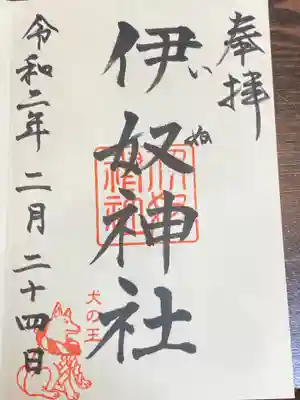 奉拝
伊奴神社
いぬ
犬の王
令和二年 二月 二十四日